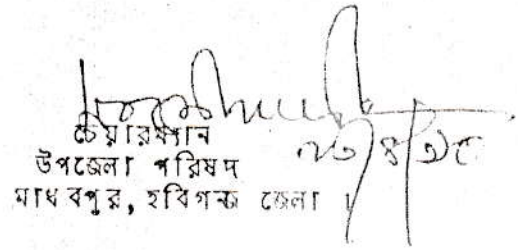 চেয়ারম্যান
উপজেলা পরিষদ
মাধবপুর, হবিগন্জ জেলা ।